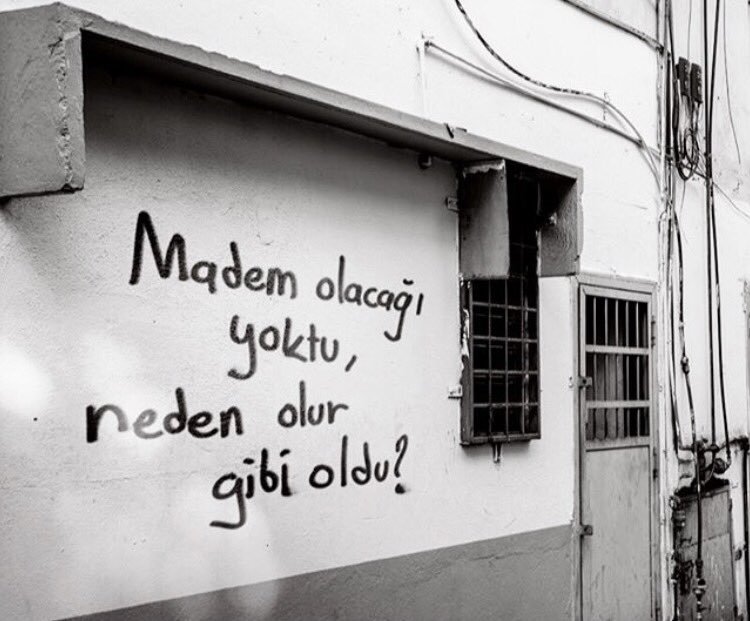 Madem olacağı
yoktu,
neden olur
gibi oldu?